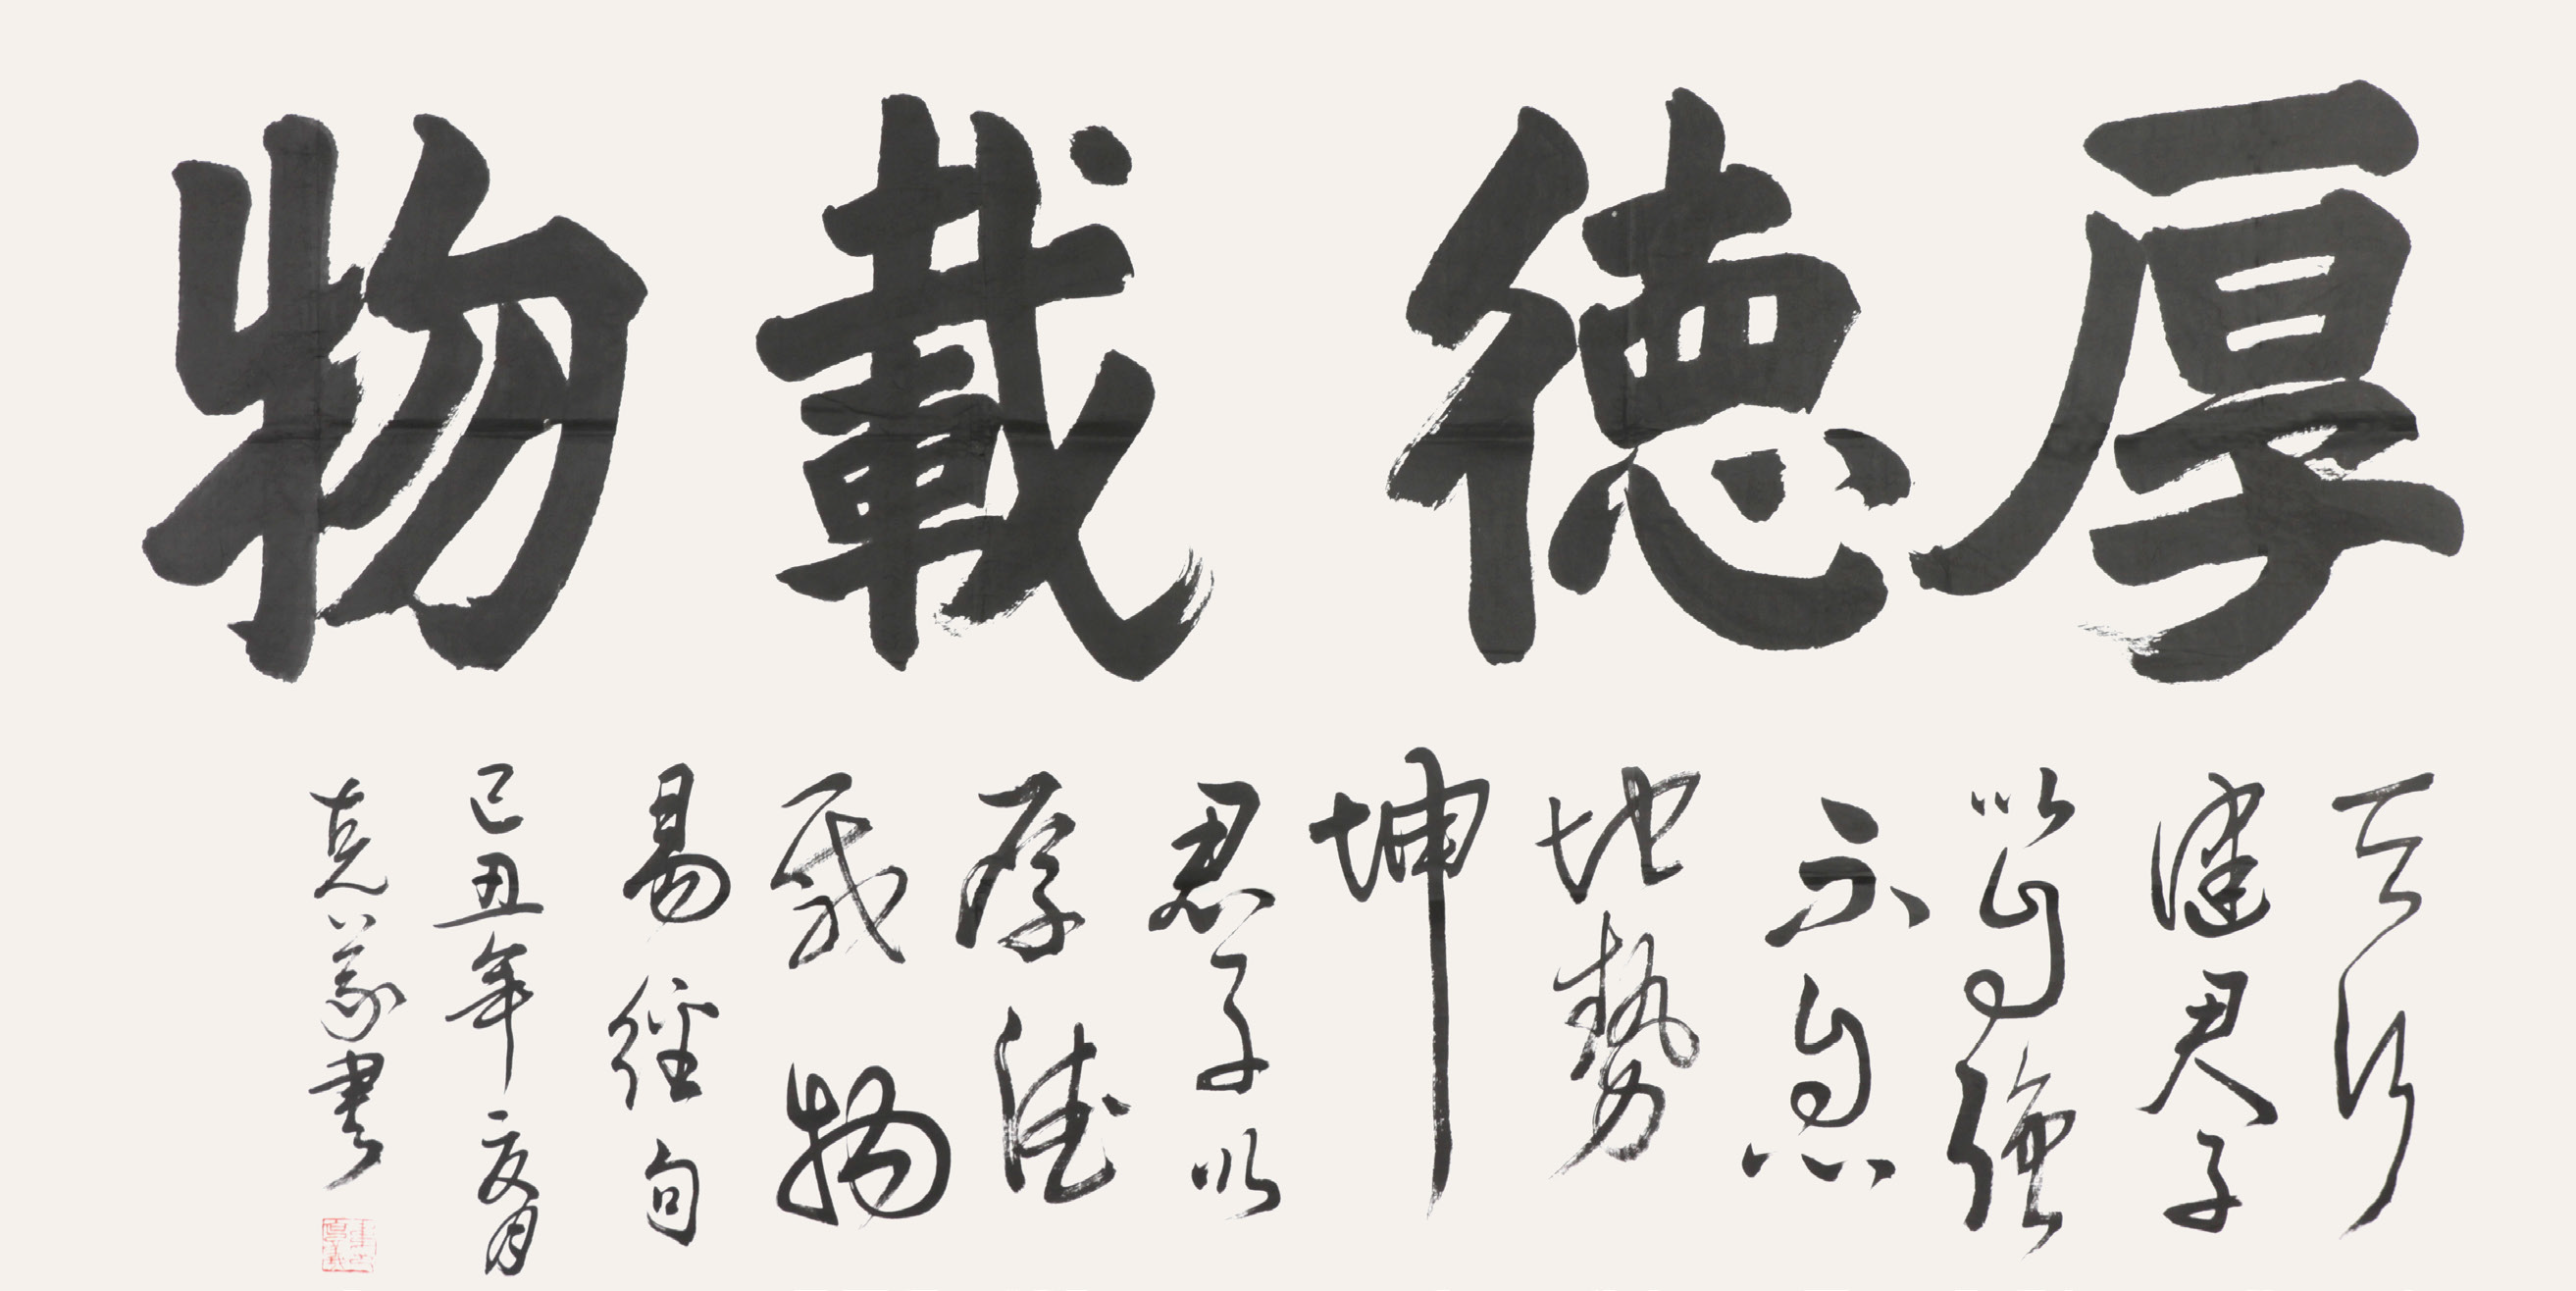 厚德載物
天行
健君子
以自強
不自息
地勢
坤
君子以
厚德
載物
易經句
己丑年夏月
克義書